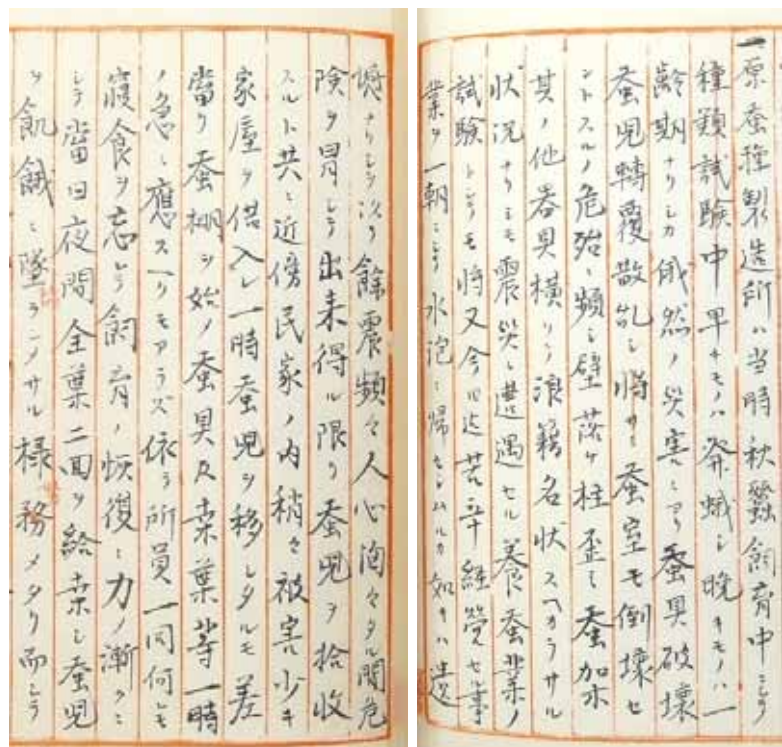 一原蚕種製造所ハ当時秋蠶飼育中ニシテ
種類試験中早キモノハ発蛾シ晩キモノハ一
齢期ナリシカ俄然ノ災害ニアリ蚕具破壊
蚕児轉覆散乱シ將サニ蚕室モ倒壊セ
ントスルノ危殆ニ頻シ壁落ケ柱歪ミ蚕架
其ノ他器具横リテ浪籍名状スヘカラサル
状况ナリシモ震災ニ遭遇セル養蚕業ノ
試験トシテモ將又今日迄苦辛経営セル事
業ヲ一朝ニシテ水泡ニ帰セシムルカ如キハ遺
憾ナリシヲ以テ餘震頻々人心洶々タル間危
険ヲ冒シテ出来得ル限リ蚕児ヲ拾收
スルト共ニ近傍民家ノ内稍々被害少キ
家屋ヲ借入レ一時蚕児ヲ移シタルモ差
當リ蚕棚ヲ始メ蚕具及桑葉等一時
ノ急ニ應スヘクモアラズ依テ所員一同何レモ
寝食ヲ忘レテ飼育ノ恢復ニ力メ漸クニ
シテ當日夜間全葉二回ヲ給桑シ蚕児
ヲ飢餓ニ墜ラシメサル様務メタリ而シテ